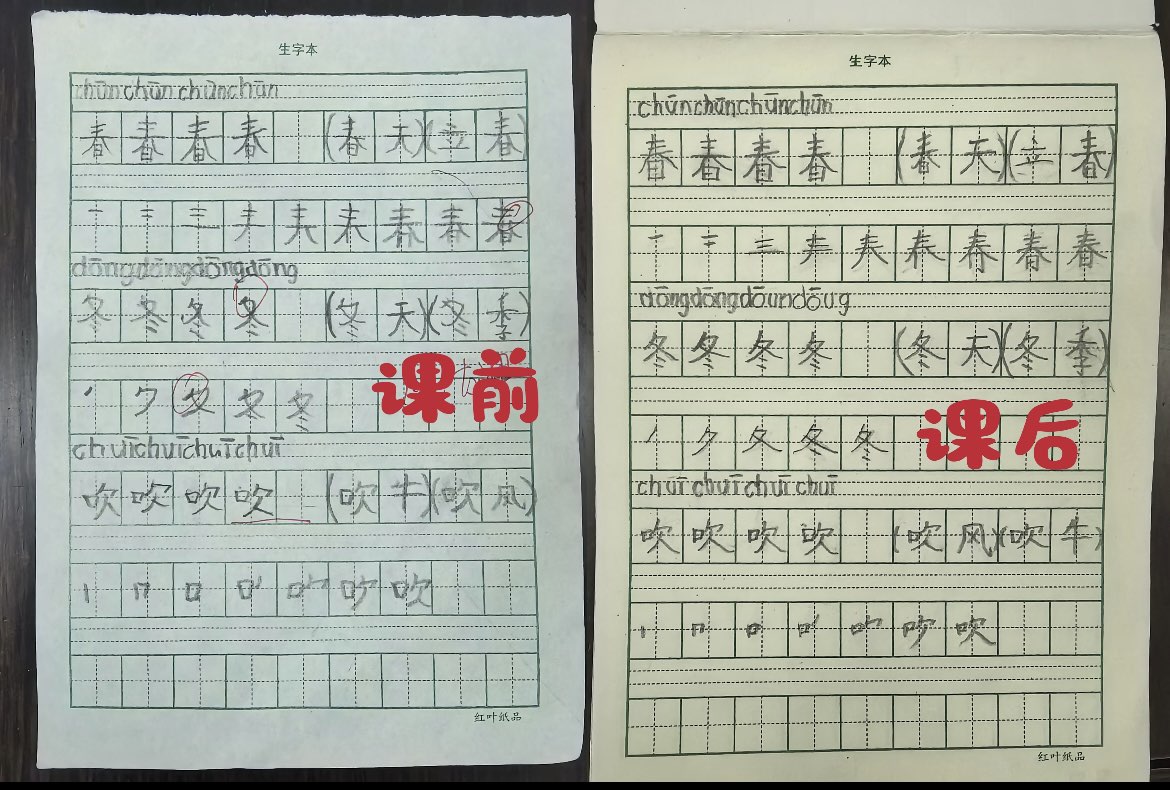 生字本
chūn chūn chūn chūn
春 春 春 春 (春 天)(立 春)
一 二 三 𡗗 春 春 春
dōng dōng dōng dōng
冬 冬 冬 冬 (冬 天)(冬 季)
丿 ク 夂 冬 冬
课前
chuī chuī chuī chuī
吹 吹 吹 吹 (吹 牛)(吹 风)
丨 冂 口 吹
红叶纸品
生字本
chūn chūn chūn chūn
春 春 春 春 (春 天)(立 春)
一 二 三 𡗗 春 春
dōng dōng dōun dōug
冬 冬 冬 冬 (冬 天)(冬 季)
丿 ク 夂 冬 冬
课后
chuī chuī chuī chuī
吹 吹 吹 吹 (吹 风)(吹 牛)
丨 冂 口 吹
红叶纸品